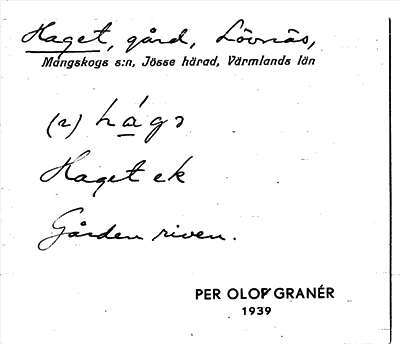 Haget, gård, Lövnäs,
Mangskogs s:n, Jösse härad, Värmlands län
(2) hágə
Haget ek
Gården riven.
PER OLOF GRANÉR
1939